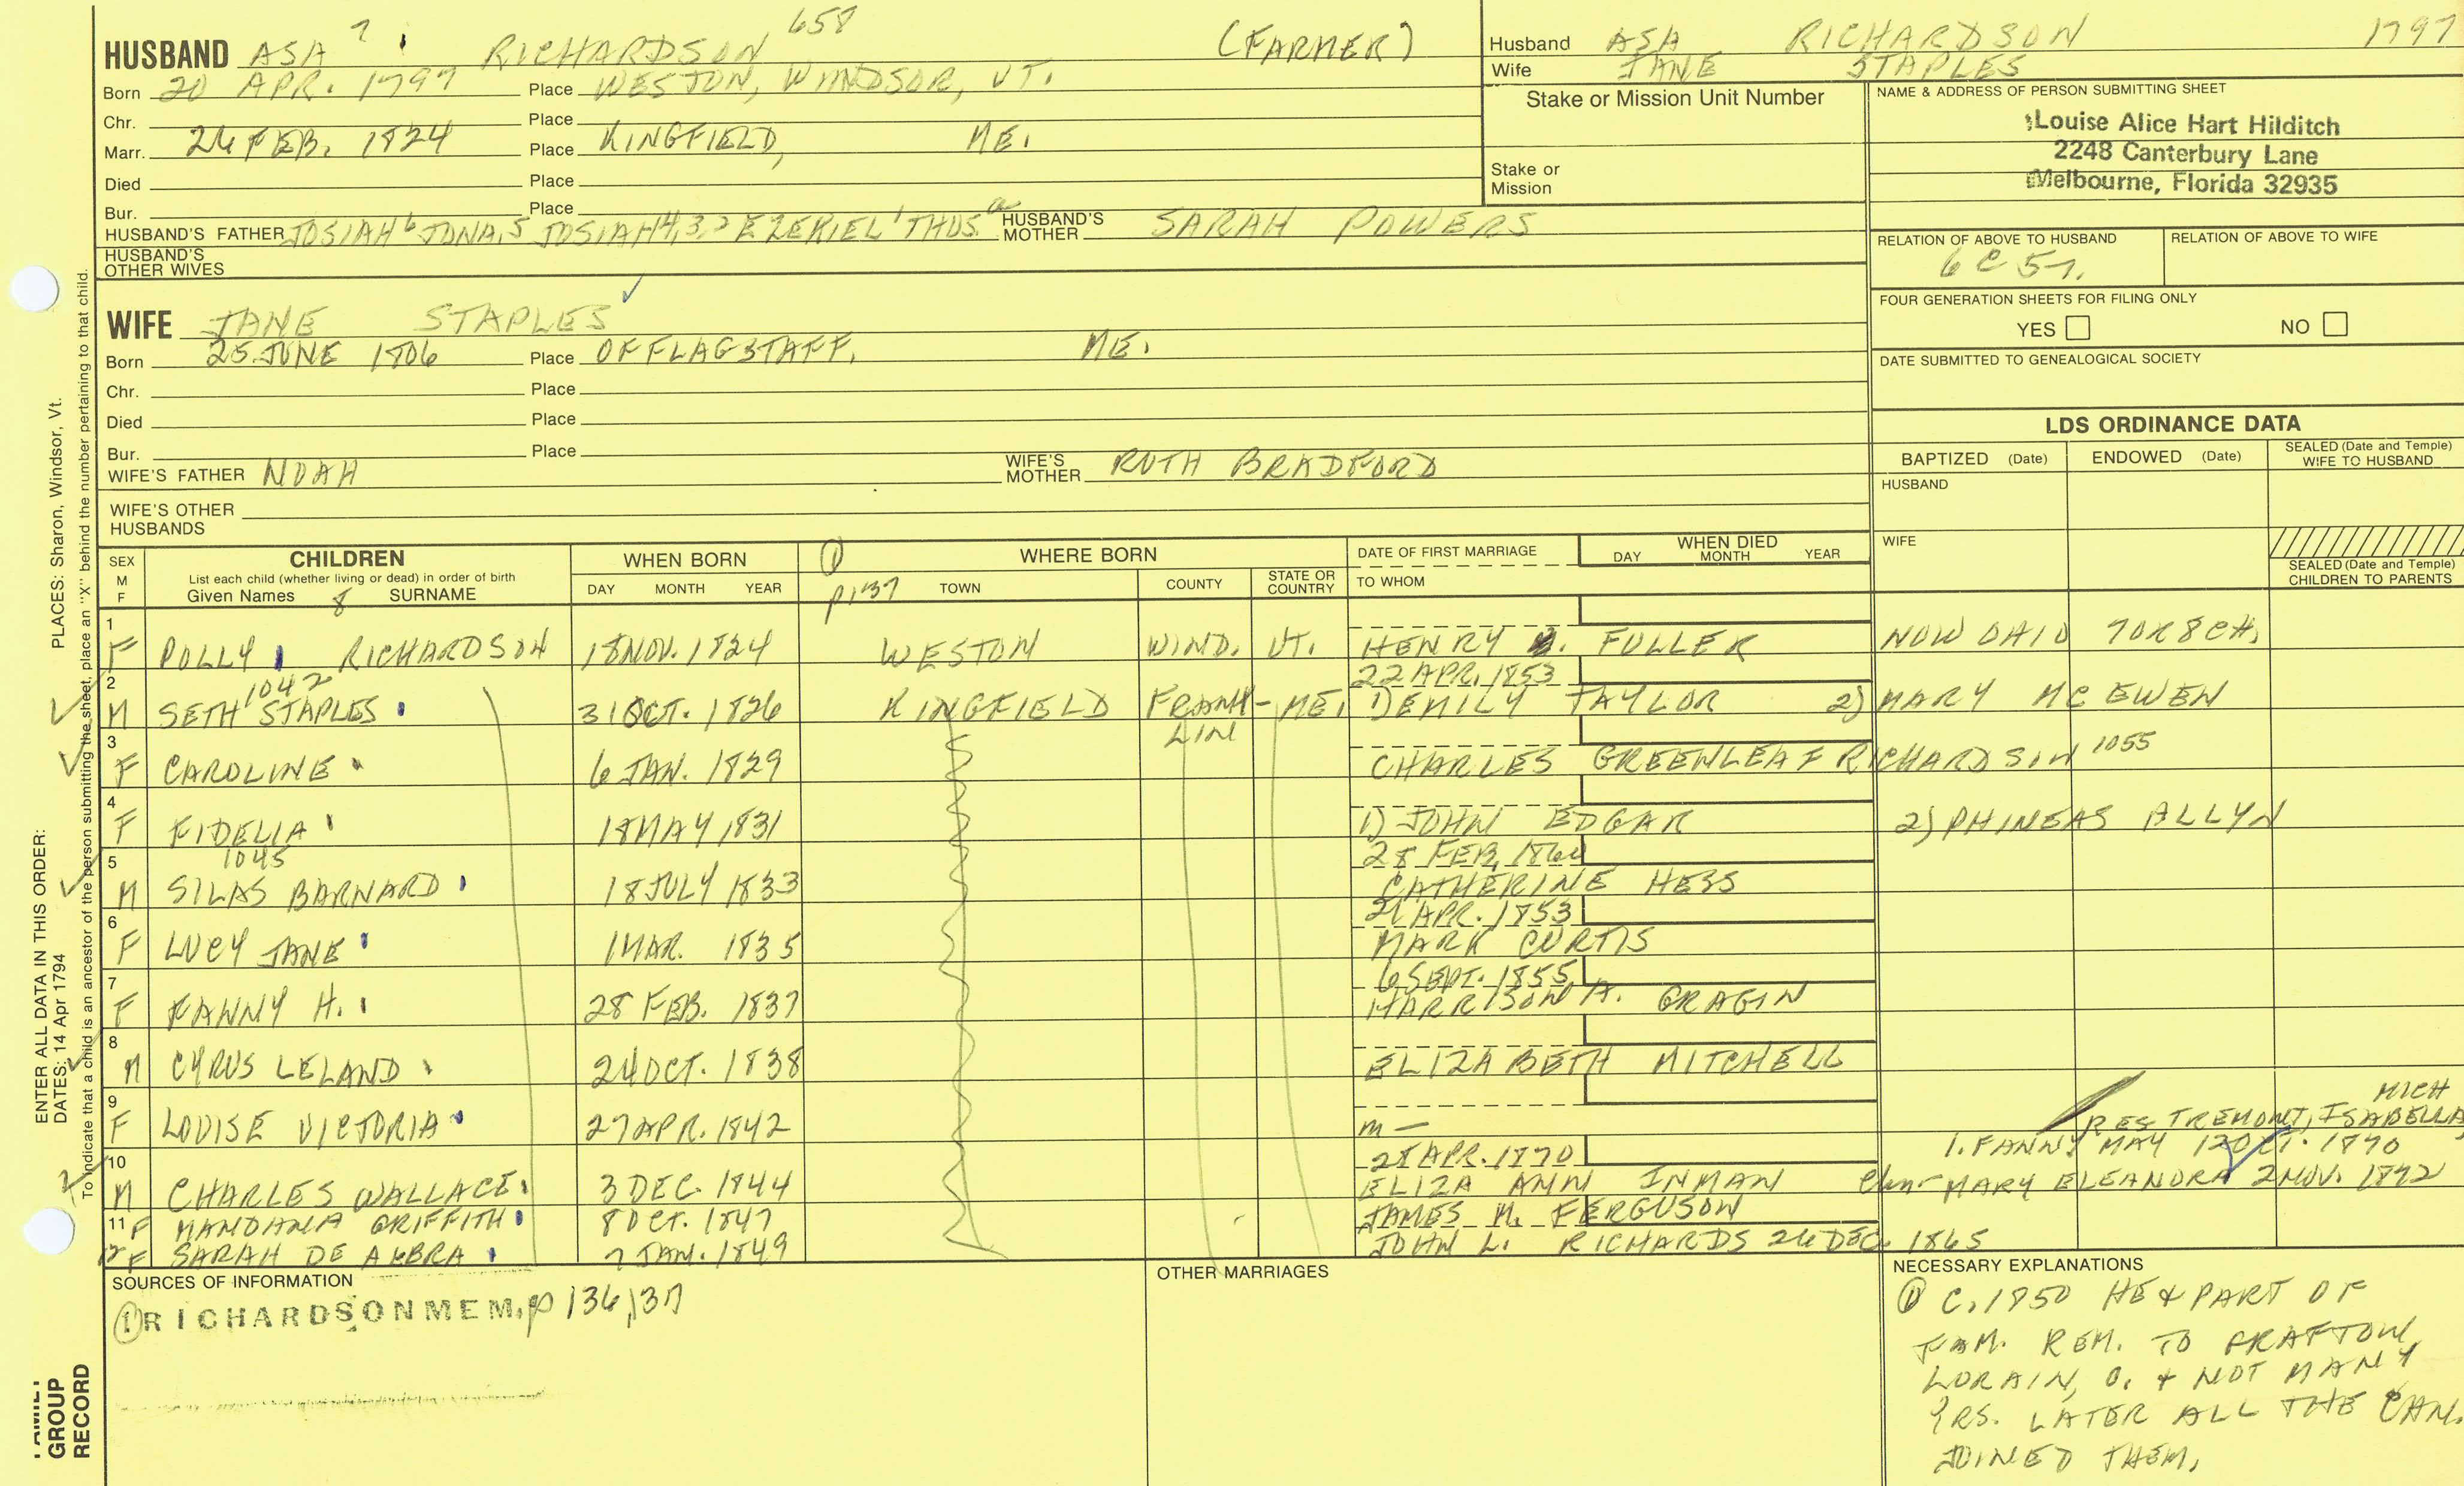 658
HUSBAND ASA 7 RICHARDSON (FARMER)
Born 20 APR. 1797 Place WESTON, WINDSOR, VT.
Chr. Place
Marr. 26 FEB. 1824 Place KINGFIELD, ME.
Died Place
Bur. Place
HUSBAND'S FATHER JOSIAH 6 JONA, 5 JOSIAH 4,3,2 EZEKIEL 1 THOS a HUSBAND'S MOTHER SARAH POWERS
HUSBAND'S OTHER WIVES
WIFE JANE STAPLES ✓
Born 25 JUNE 1806 Place OF FLAGSTAFF, ME.
Chr. Place
Died Place
Bur. Place
WIFE'S FATHER NOAH WIFE'S MOTHER RUTH BRADFORD
WIFE'S OTHER HUSBANDS
Husband ASA RICHARDSON 1797
Wife JANE STAPLES
Stake or Mission Unit Number
Stake or Mission
NAME & ADDRESS OF PERSON SUBMITTING SHEET
Louise Alice Hart Hilditch
2248 Canterbury Lane
Melbourne, Florida 32935
RELATION OF ABOVE TO HUSBAND RELATION OF ABOVE TO WIFE
6 C 5
FOUR GENERATION SHEETS FOR FILING ONLY
YES NO
DATE SUBMITTED TO GENEALOGICAL SOCIETY
LDS ORDINANCE DATA
BAPTIZED (Date) ENDOWED (Date) SEALED (Date and Temple) WIFE TO HUSBAND
HUSBAND
WIFE
SEALED (Date and Temple) CHILDREN TO PARENTS
SEX M F
CHILDREN
List each child (whether living or dead) in order of birth
Given Names 8 SURNAME
WHEN BORN
DAY MONTH YEAR
① WHERE BORN
p137 TOWN COUNTY STATE OR COUNTRY
DATE OF FIRST MARRIAGE
TO WHOM
WHEN DIED
DAY MONTH YEAR
1 F POLLY RICHARDSON 18 NOV. 1824 WESTON WIND. VT. HENRY FULLER NOW OHIO 7 OR 8 CH.
22 APR. 1853
2 M SETH 1042 STAPLES 31 OCT. 1826 KINGFIELD FRANK-LIN ME. 1) EMILY TAYLOR 2) MARY MC EWEN
3 F CAROLINE 6 JAN. 1829 CHARLES GREENLEAF RICHARDSON 1055
4 F FIDELIA 18 MAY 1831 1) JOHN EDGAR 2) PHINEAS ALLYN
1045
28 FEB, 1860
5 M SILAS BARNARD 18 JULY 1833 CATHERINE HESS
21 APR. 1853
6 F LUCY JANE 1 MAR. 1835 MARK CURTIS
6 SEPT. 1855
7 F FANNY H. 28 FEB. 1837 HARRISON A. GRAGIN
8 M CYRUS LELAND 24 OCT. 1838 ELIZABETH MITCHELL
9 F LOUISE VICTORIA 27 APR. 1842 m —
MICH
RES TREMONT, ISABELLA
28 APR. 1870 1. FANNY MAY 12 OCT. 1870
10 M CHARLES WALLACE 3 DEC. 1844 ELIZA ANN INMAN MARY ELEANORA 2 NOV. 1872
11 F MANDANA GRIFFITH 8 OCT. 1847 JAMES M. FERGUSON
12 F SARAH DE ALBRA 7 JAN. 1849 JOHN L. RICHARDS 26 DEC. 1865
SOURCES OF INFORMATION
① RICHARDSON MEM, p 136,37
OTHER MARRIAGES
NECESSARY EXPLANATIONS
① C. 1850 HE & PART OF
FAM. REM. TO GRAFTON,
LORAIN, O. & NOT MANY
YRS. LATER ALL THE
JOINED THEM.
ENTER ALL DATA IN THIS ORDER:
DATES: 14 Apr 1794 PLACES: Sharon, Windsor, Vt.
To indicate that a child is an ancestor of the person submitting the sheet, place an "X" behind the number pertaining to that child.
FAMILY
GROUP
RECORD